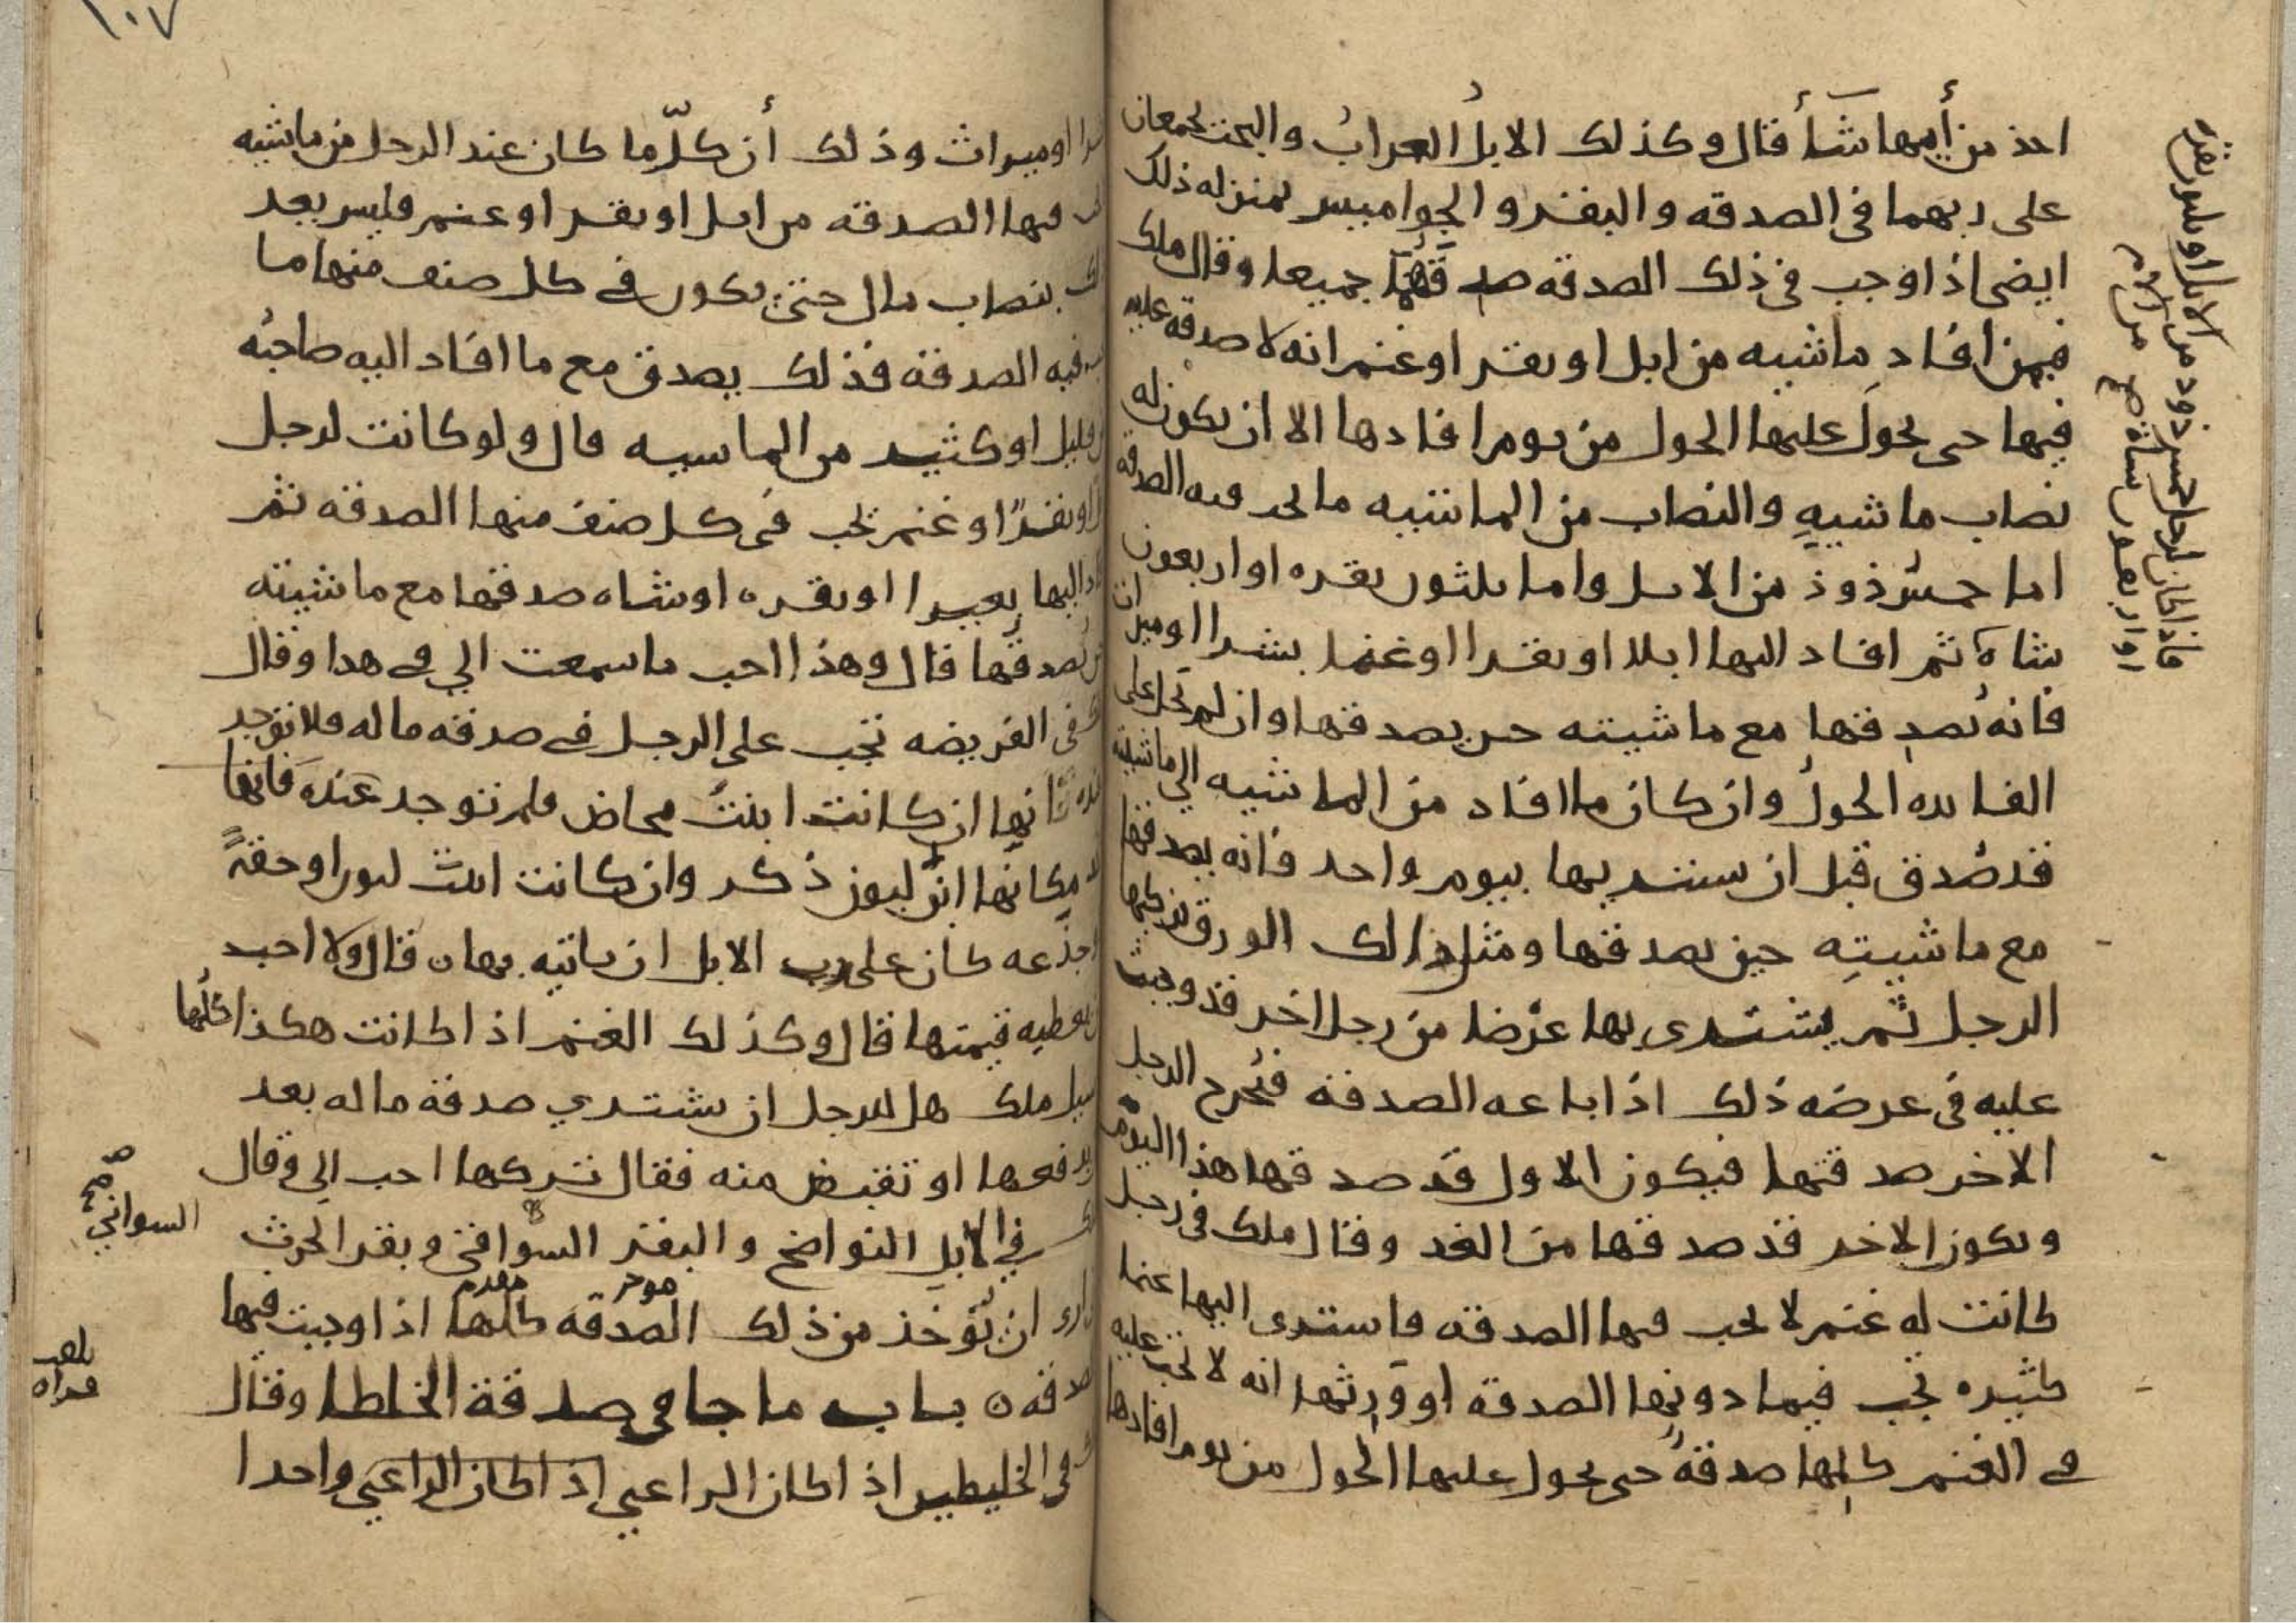 اخذ من أيهما شَأَ قال وكذلك الابلُ العرابُ والبخت يجمعان
على ربهما فى الصدقه والبقر والجواميس بمنزله ذلك
ايضى اذا وجب فى ذلك الصدقه صدقهما جميعا وقال ملك
فيمن افاد ماشيه من ابل او بقر او غنم انه لا صدقه عليه
فيها حى يحولَ عليها الحول من يوم افادها الا ان يكون له
نصاب ماشيهٍ والنصاب من الماشيه ما تجب فيه الصدقه
اما خمسُ ذوذ من الابل واما ثلثون بقره او اربعون
شاة ثم افاد اليها ابلا او بقرا او غنما بشرا او ميراث
فانه يُصدقها مع ماشيته حىن يصدقها وان لم تحل على
الفايده الحولُ وان كان ما افاد من الماشيه الى ماشيته
قد صُدق قبل ان يشتريها بيوم واحد فانه يصدقها
مع ماشيتهِ حين يصدقها ومثل ذالك الورق يزكيها
الرجل ثم يشترى بها عرْضا من رجل اخر قد وجبت
عليه فى عرضه ذلك اذا باعه الصدقة فيُخرج الرجل
الاخر صدقتها فيكون الاول قد صدقها هذا اليوم
ويكون الاخر قد صدقها من الغد وقال ملك فى رجل
كانت له غنم لا تجب فيها الصدقه فاشترى اليها غنما
كثيره تجب فيما دونها الصدقه او ورثها انه لا تجب عليه
في الغنم كلها صدقةُ حى يحول عليها الحول من يوم افادها
فاذا كان لرجل خمس ذود من الابل او ثلثون بقره
او اربعون شاة صح من الام
١٠٧
او ميراث وذلك أن كلّما كان عند الرجل من ماشيه
فيها الصدقه من ابل او بقر او غنم فليس يعد
بنصاب مال حتى يكون في كل صنف منها ما
فيه الصدقة فذلك يصدق مع ما افاد اليه صاحبُه
قليل او كثير من الماشيه قال ولو كانت لرجل
او بقرًا او غنم تجب فى كل صنف منها الصدقه ثم
اليها بعيرا او بقره او شاه صدقها مع ماشيته
يُصدقها قال وهذا احب ما سمعت الي في هدا وقال
فى الفريضه تجب على الرجل في صدقه ماله فلا توجد
انها ان كانت ابنتُ مخاض فلم توجد عندَه فانها
مكانَها ابنُ لبون ذكر وان كانت ابنت لبون او حقةً
جذعه كان على رب الابل ان ياتيه بها ٥ قال ولا احب
يعطيه قيمتها قال وكذلك الغنم اذا كانت هكذا كلُها
سيل ملك هل للرجل ان يشتري صدقة ماله بعد
يدفعها او تقبض منه فقال تركها احب الى وقال
في الابلِ النواضح والبقر السوافى وبقر الحرث
ارى ان تؤخذ من ذلك الصدقه كلها اذا وجبت فيها
موخر مقدم
صدقه ٥ باب ما جا في صدقة الخلطا وقال
فى الخليطين اذا كان الراعي اذا كان الراعي واحدا
صح
السواني
بلغت
قراه